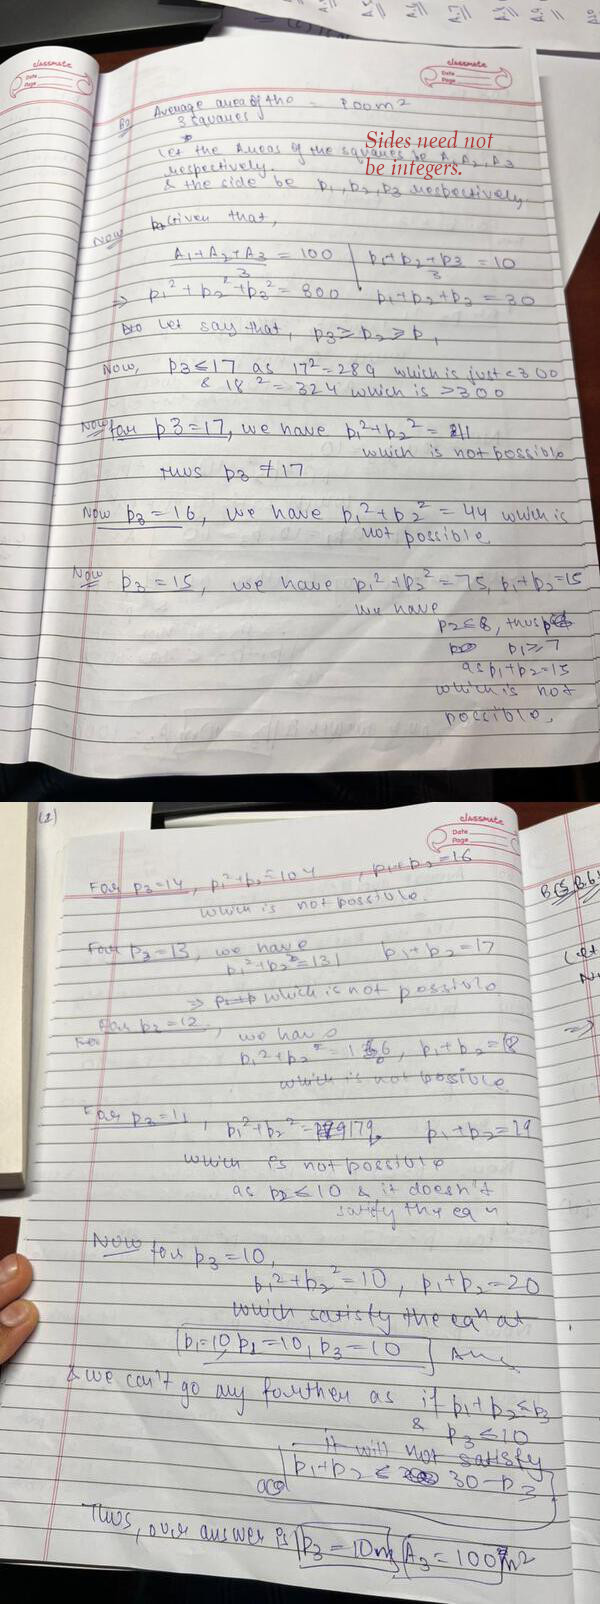 classmate
Date
Page
classmate
Date
Page
B2) Average area of the = 100m²
3 squares
Let the Areas of the squares be A₁, A₂, A₃
respectively.
& the side be p₁, p₂, p₃ respectively,
Sides need not
be integers.
Now Given that,
A₁+A₂+A₃/3 = 100 | p₁+p₂+p₃/3 = 10
⇒ p₁²+p₂²+p₃² = 300 p₁+p₂+p₃ = 30
Let say that, p₃ ≥ p₂ ≥ p₁
Now, p₃ ≤ 17 as 17² = 289 which is just < 300
& 18² = 324 which is > 300
Now for p3 = 17, we have p₁²+p₂² = 11
which is not possible
Thus p₃ ≠ 17
Now p₃ = 16, we have p₁²+p₂² = 44 which is
not possible
Now p₃ = 15, we have p₁²+p₂² = 75, p₁+p₂ = 15
we have
p₂ ≤ 8, thus
p₁ ≥ 7
as p₁+p₂ = 15
which is not
possible.
(2)
classmate
Date
Page
For p₃ = 14, p₁²+p₂² = 104, p₁+p₂ = 16
which is not possible.
For p₃ = 13, we have
p₁²+p₂² = 131 p₁+p₂ = 17
⇒ which is not possible
For p₃ = 12, we have
p₁²+p₂² = 156, p₁+p₂ = 18
which is not possible
For p₃ = 11, p₁²+p₂² = 179, p₁+p₂ = 19
which is not possible
as p₂ ≤ 10 & it doesn't
satisfy the eqn.
Now for p₃ = 10,
p₁²+p₂² = 10, p₁+p₂ = 20
which satisfy the eqn at
p₁=10, p₂=10, p₃=10 Ans
& we can't go any further as if p₁+p₂ ≤ p₃
& p₃ ≤ 10
it will not satisfy
p₁+p₂ ≤ 30-p₃
Thus, our answer is p₃ = 10m, A₃ = 100m²